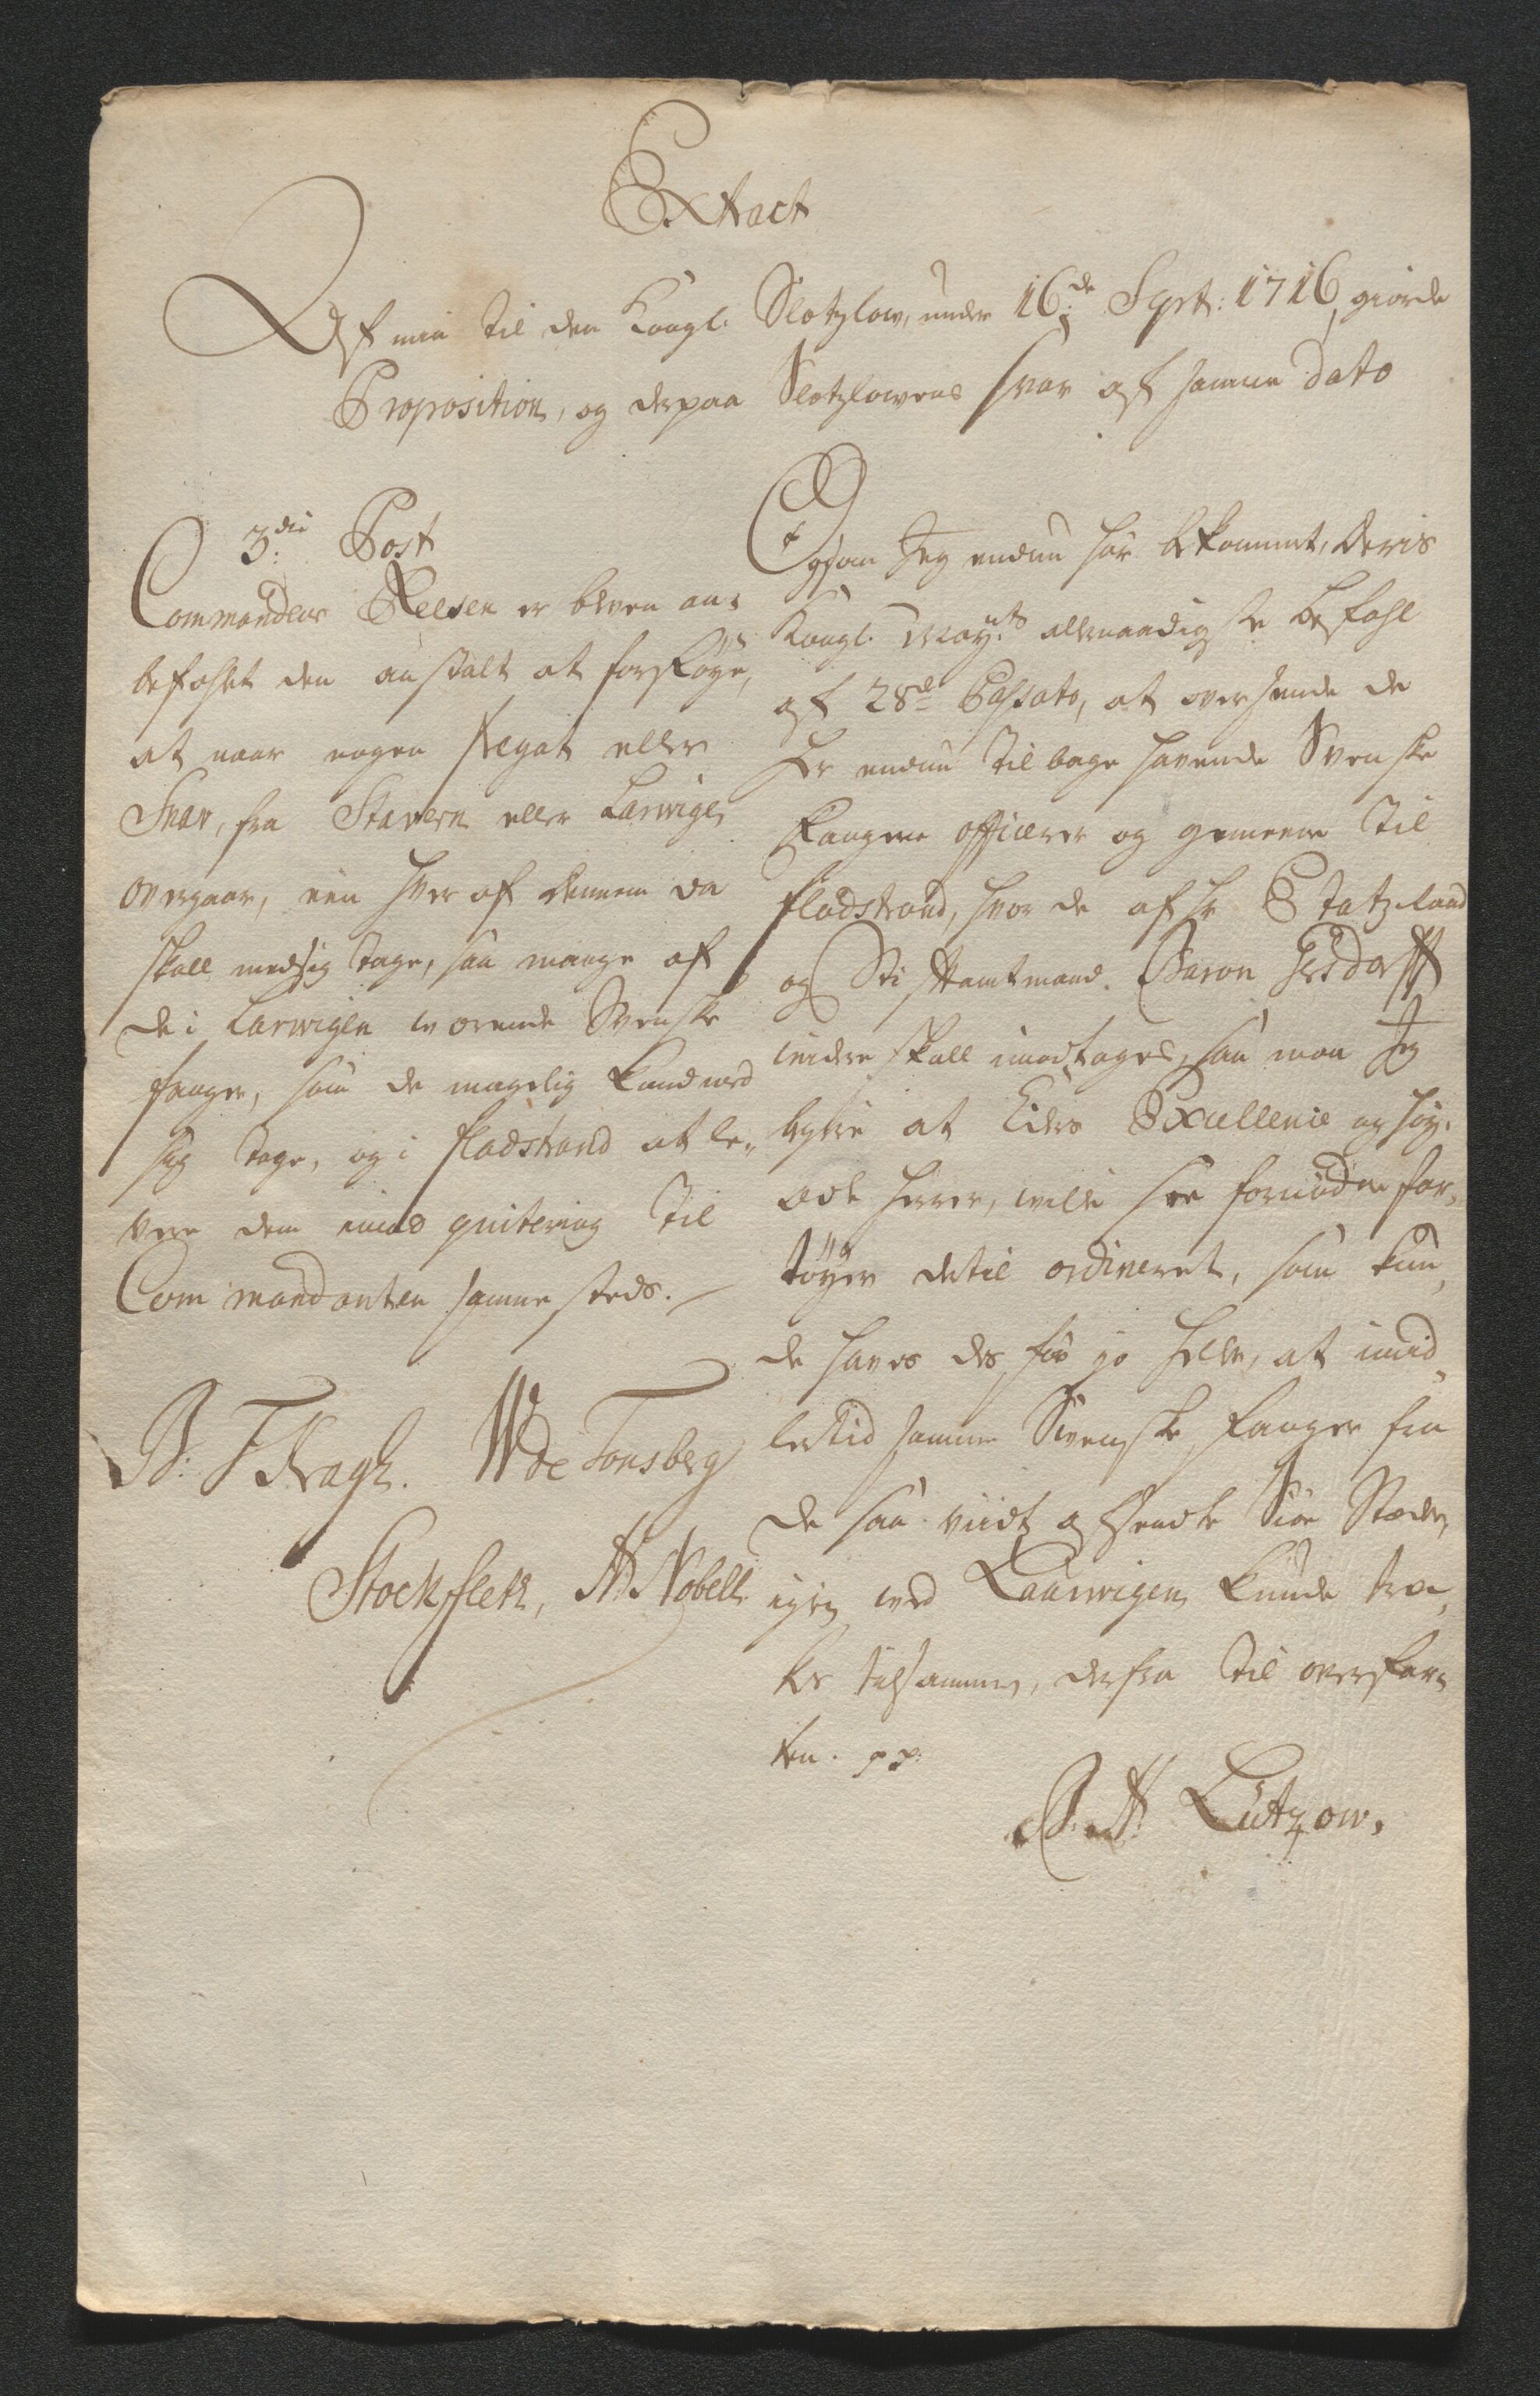 Extract
Af min til den Kongl. Slotzlow, under 16de Sept: 1716, giorde
Proposition, og derpaa Slotzlowens svar af samme dato
3die Post
Commandeur Reesen er bleven an-
befahlet den anstalt at forføye,
at naar nogen fregat eller
Snau, fra Stavern eller Larwigen
overgaar, een hver af dennem da
skall med sig tage, saa mange af
de i Larwigen werende Svenske
fanger, som de magelig kand med
sig tage, og i fladstrand at le-
vere dem imod quitering til
Commandanten samme steds.
B: F Kragh. W de Tonsberg
Stockfleth, A: Nobell
Efsom Jeg endnu har bekommet, Deris
Kongl. Mayts allernaadigste befahl
af 28de Passato, at oversende de
her endnu tilbage havende Svenske
Fangene officerer og gemeene til
fladstrand, hvor de af hr Etatz-Raad
og Stiftamtmand Baron Gersdorff
widere skall imodtages, saa maa Jeg
begiere at Eders Excellence og høy-
ædle herrer, wille see fornøden far-
tøyer dertil ordineret, som kun-
de haves des før jo heller, at imid-
lertid samme Svenske Fanger fra
de saa viidt afsendte Siøe Stæder,
igien ved Laurwigen kunde træ-
kes tilsammen, derfra til overfar-
ten. pp:
B. H. Lützow.